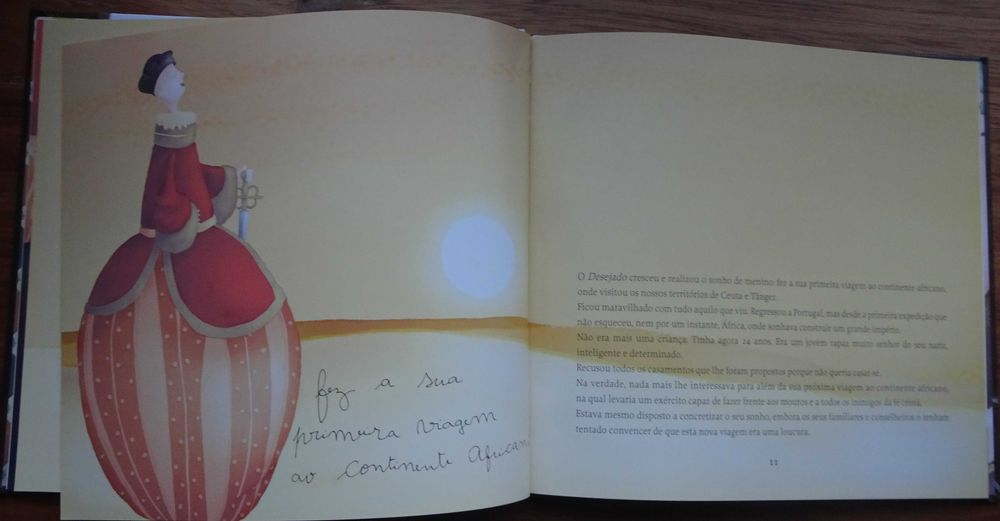 fez a sua
primeira viagem
ao Continente African
O Desejado cresceu e realizou o sonho de menino: fez a sua primeira viagem ao continente africano,
onde visitou os nossos territórios de Ceuta e Tânger.
Ficou maravilhado com tudo aquilo que viu. Regressou a Portugal, mas desde a primeira expedição que
não esqueceu, nem por um instante, África, onde sonhava construir um grande império.
Não era mais uma criança. Tinha agora 24 anos. Era um jovem rapaz muito senhor do seu nariz,
inteligente e determinado.
Recusou todos os casamentos que lhe foram propostos porque não queria casar-se.
Na verdade, nada mais lhe interessava para além da sua próxima viagem ao continente africano,
na qual levaria um exército capaz de fazer frente aos mouros e a todos os inimigos da fé cristã.
Estava mesmo disposto a concretizar o seu sonho, embora os seus familiares e conselheiros o tenham
tentado convencer de que esta nova viagem era uma loucura.
11